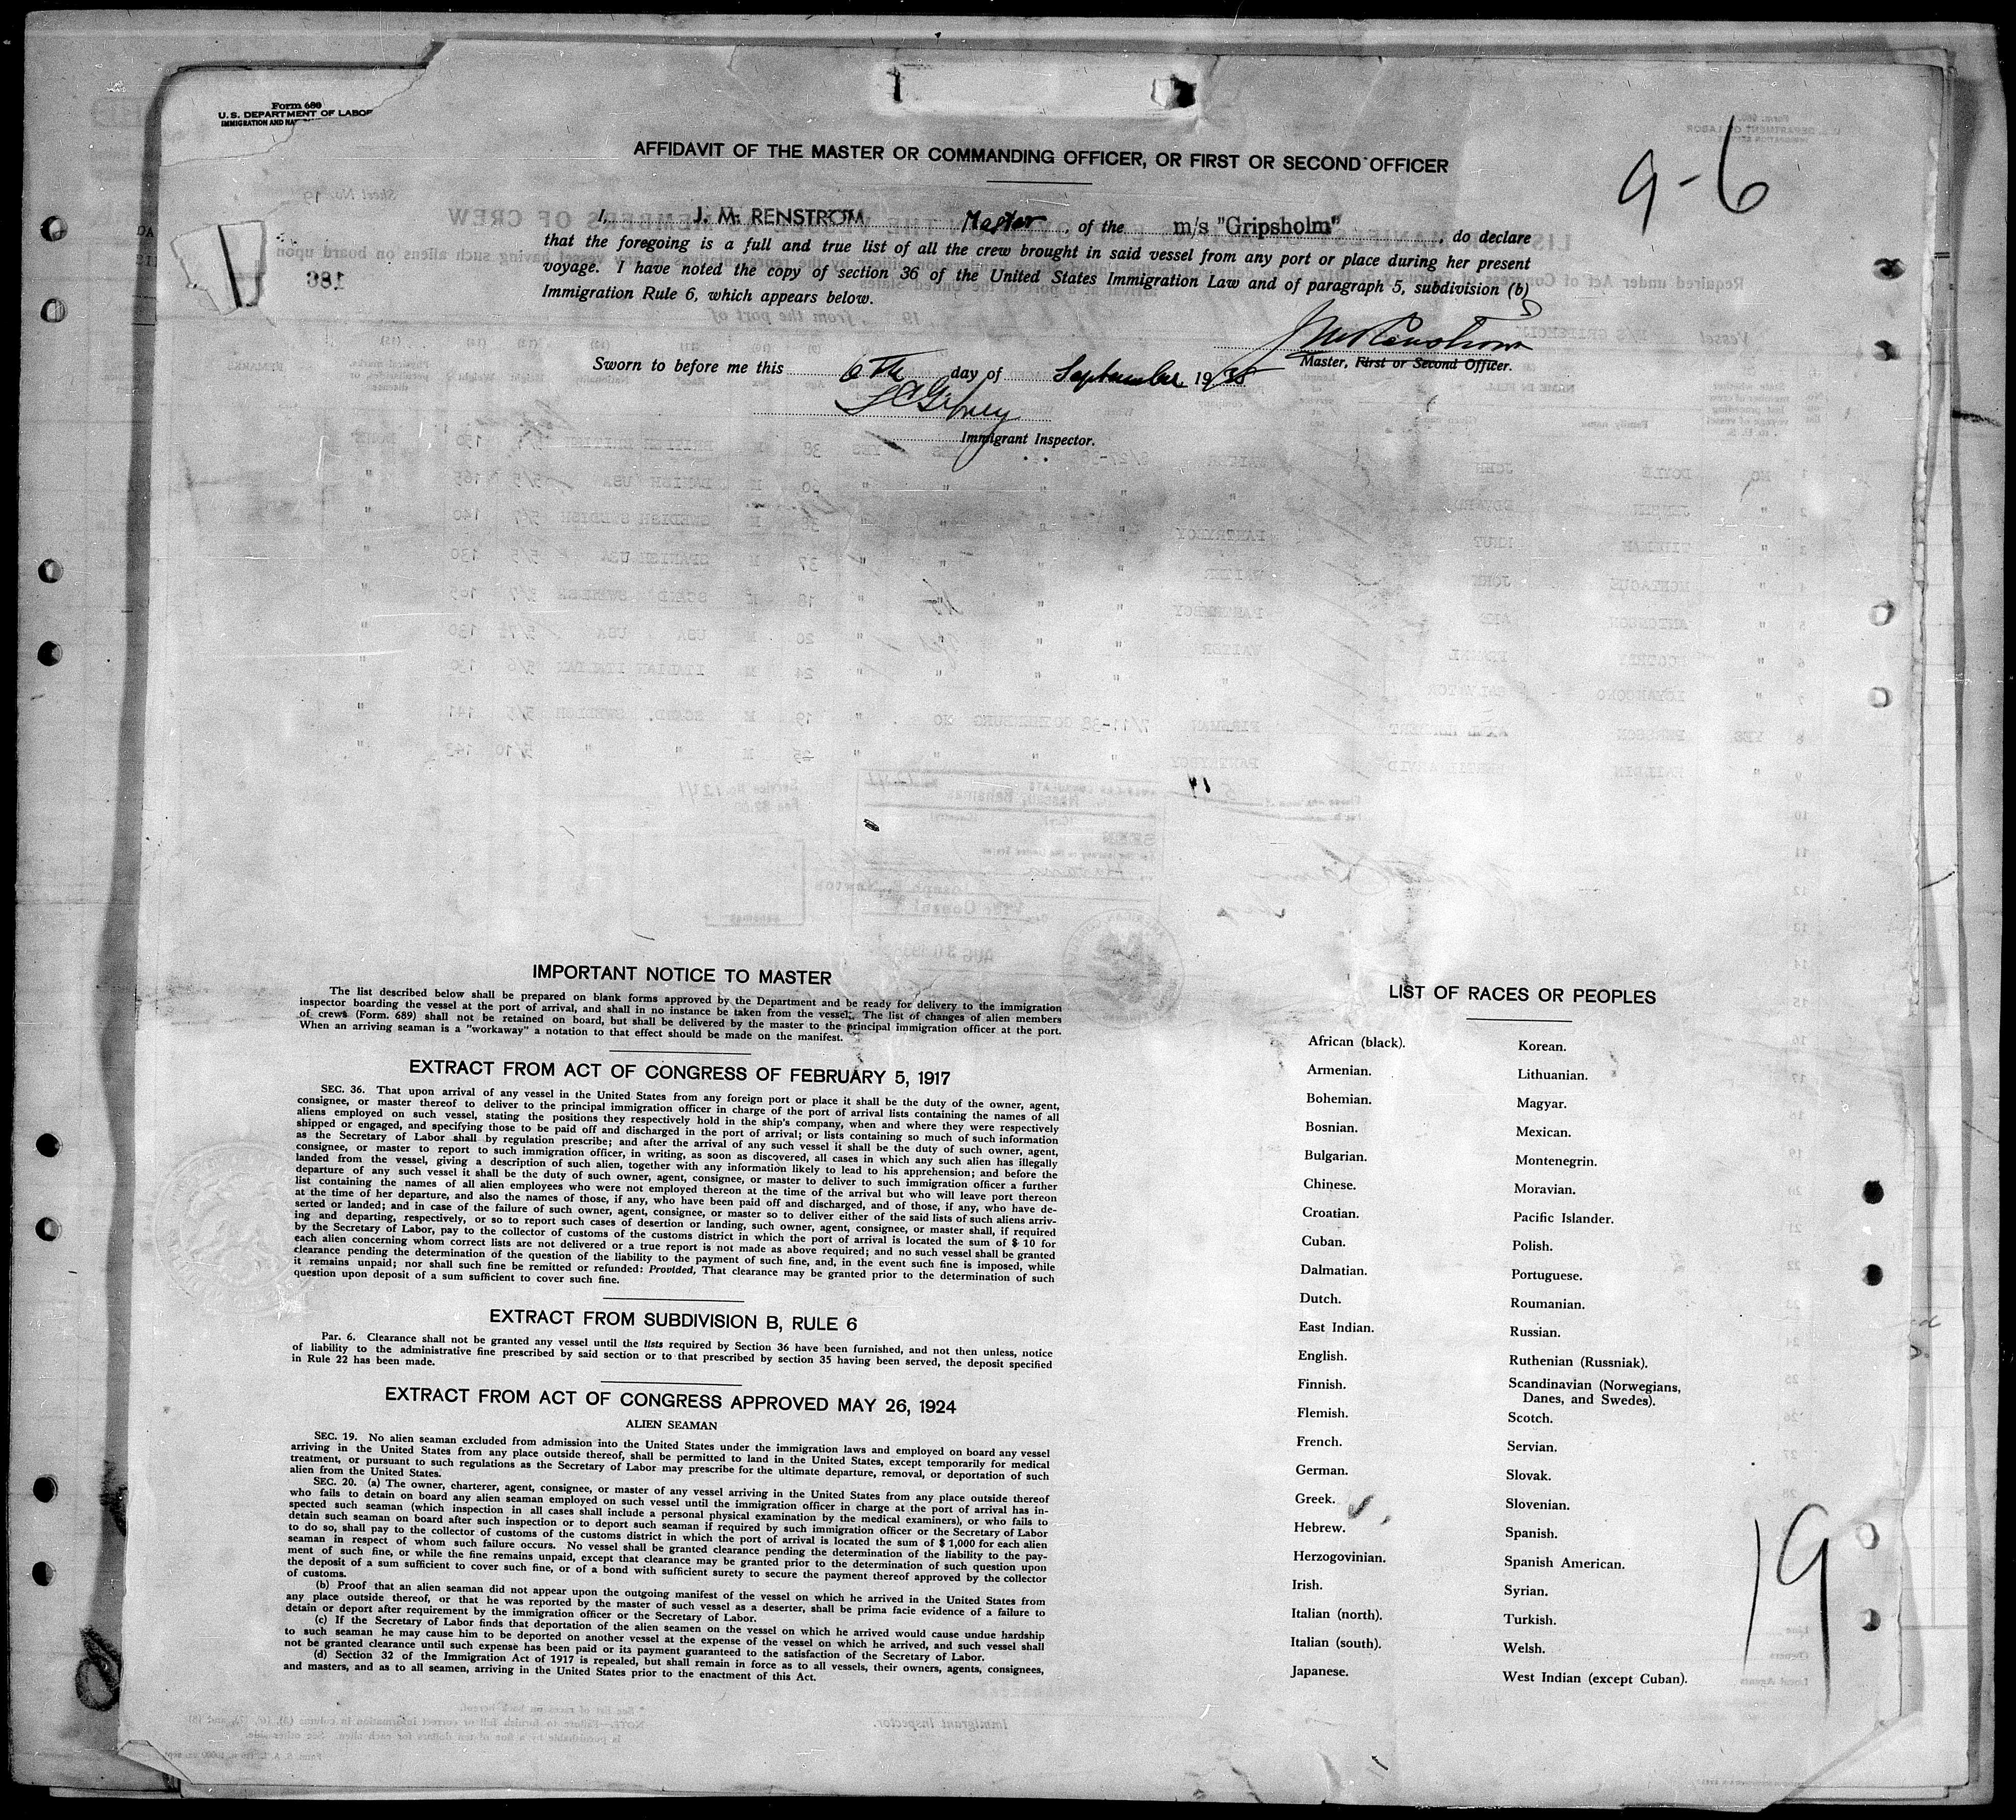 Form 680
U.S. DEPARTMENT OF LABOR
IMMIGRATION AND NA
AFFIDAVIT OF THE MASTER OR COMMANDING OFFICER, OR FIRST OR SECOND OFFICER
9-6
I, J. M. RENSTROM Master, of the m/s "Gripsholm", do declare
that the foregoing is a full and true list of all the crew brought in said vessel from any port or place during her present
voyage. I have noted the copy of section 36 of the United States Immigration Law and of paragraph 5, subdivision (b)
Immigration Rule 6, which appears below.
Master, First or Second Officer.
Sworn to before me this 6th day of September 1938
Immigrant Inspector.
IMPORTANT NOTICE TO MASTER
The list described below shall be prepared on blank forms approved by the Department and be ready for delivery to the immigration
inspector boarding the vessel at the port of arrival, and shall in no instance be taken from the vessel. The list of changes of alien members
of crews (Form. 689) shall not be retained on board, but shall be delivered by the master to the principal immigration officer at the port.
When an arriving seaman is a "workaway" a notation to that effect should be made on the manifest.
EXTRACT FROM ACT OF CONGRESS OF FEBRUARY 5, 1917
SEC. 36. That upon arrival of any vessel in the United States from any foreign port or place it shall be the duty of the owner, agent,
consignee, or master thereof to deliver to the principal immigration officer in charge of the port of arrival lists containing the names of all
aliens employed on such vessel, stating the positions they respectively hold in the ship's company, when and where they were respectively
shipped or engaged, and specifying those to be paid off and discharged in the port of arrival; or lists containing so much of such information
as the Secretary of Labor shall by regulation prescribe; and after the arrival of any such vessel it shall be the duty of such owner, agent,
consignee, or master to report to such immigration officer, in writing, as soon as discovered, all cases in which any such alien has illegally
landed from the vessel, giving a description of such alien, together with any information likely to lead to his apprehension; and before the
departure of any such vessel it shall be the duty of such owner, agent, consignee, or master to deliver to such immigration officer a further
list containing the names of all alien employees who were not employed thereon at the time of the arrival but who will leave port thereon
at the time of her departure, and also the names of those, if any, who have been paid off and discharged, and of those, if any, who have de-
serted or landed; and in case of the failure of such owner, agent, consignee, or master so to deliver either of the said lists of such aliens arriv-
ing and departing, respectively, or so to report such cases of desertion or landing, such owner, agent, consignee, or master shall, if required
by the Secretary of Labor, pay to the collector of customs of the customs district in which the port of arrival is located the sum of $ 10 for
each alien concerning whom correct lists are not delivered or a true report is not made as above required; and no such vessel shall be granted
clearance pending the determination of the question of the liability to the payment of such fine, and, in the event such fine is imposed, while
it remains unpaid; nor shall such fine be remitted or refunded: Provided, That clearance may be granted prior to the determination of such
question upon deposit of a sum sufficient to cover such fine.
EXTRACT FROM SUBDIVISION B, RULE 6
Par. 6. Clearance shall not be granted any vessel until the lists required by Section 36 have been furnished, and not then unless, notice
of liability to the administrative fine prescribed by said section or to that prescribed by section 35 having been served, the deposit specified
in Rule 22 has been made.
EXTRACT FROM ACT OF CONGRESS APPROVED MAY 26, 1924
ALIEN SEAMAN
SEC. 19. No alien seaman excluded from admission into the United States under the immigration laws and employed on board any vessel
arriving in the United States from any place outside thereof, shall be permitted to land in the United States, except temporarily for medical
treatment, or pursuant to such regulations as the Secretary of Labor may prescribe for the ultimate departure, removal, or deportation of such
alien from the United States.
SEC. 20. (a) The owner, charterer, agent, consignee, or master of any vessel arriving in the United States from any place outside thereof
who fails to detain on board any alien seaman employed on such vessel until the immigration officer in charge at the port of arrival has in-
spected such seaman (which inspection in all cases shall include a personal physical examination by the medical examiners), or who fails to
detain such seaman on board after such inspection or to deport such seaman if required by such immigration officer or the Secretary of Labor
to do so, shall pay to the collector of customs of the customs district in which the port of arrival is located the sum of $ 1,000 for each alien
seaman in respect of whom such failure occurs. No vessel shall be granted clearance pending the determination of the liability to the pay-
ment of such fine, or while the fine remains unpaid, except that clearance may be granted prior to the determination of such question upon
the deposit of a sum sufficient to cover such fine, or of a bond with sufficient surety to secure the payment thereof approved by the collector
of customs.
(b) Proof that an alien seaman did not appear upon the outgoing manifest of the vessel on which he arrived in the United States from
any place outside thereof, or that he was reported by the master of such vessel as a deserter, shall be prima facie evidence of a failure to
detain or deport after requirement by the immigration officer or the Secretary of Labor.
(c) If the Secretary of Labor finds that deportation of the alien seamen on the vessel on which he arrived would cause undue hardship
to such seaman he may cause him to be deported on another vessel at the expense of the vessel on which he arrived, and such vessel shall
not be granted clearance until such expense has been paid or its payment guaranteed to the satisfaction of the Secretary of Labor.
(d) Section 32 of the Immigration Act of 1917 is repealed, but shall remain in force as to all vessels, their owners, agents, consignees,
and masters, and as to all seamen, arriving in the United States prior to the enactment of this Act.
LIST OF RACES OR PEOPLES
African (black).
Armenian.
Bohemian.
Bosnian.
Bulgarian.
Chinese.
Croatian.
Cuban.
Dalmatian.
Dutch.
East Indian.
English.
Finnish.
Flemish.
French.
German.
Greek.
Hebrew.
Herzogovinian.
Irish.
Italian (north).
Italian (south).
Japanese.
Korean.
Lithuanian.
Magyar.
Mexican.
Montenegrin.
Moravian.
Pacific Islander.
Polish.
Portuguese.
Roumanian.
Russian.
Ruthenian (Russniak).
Scandinavian (Norwegians,
Danes, and Swedes).
Scotch.
Servian.
Slovak.
Slovenian.
Spanish.
Spanish American.
Syrian.
Turkish.
Welsh.
West Indian (except Cuban).
19